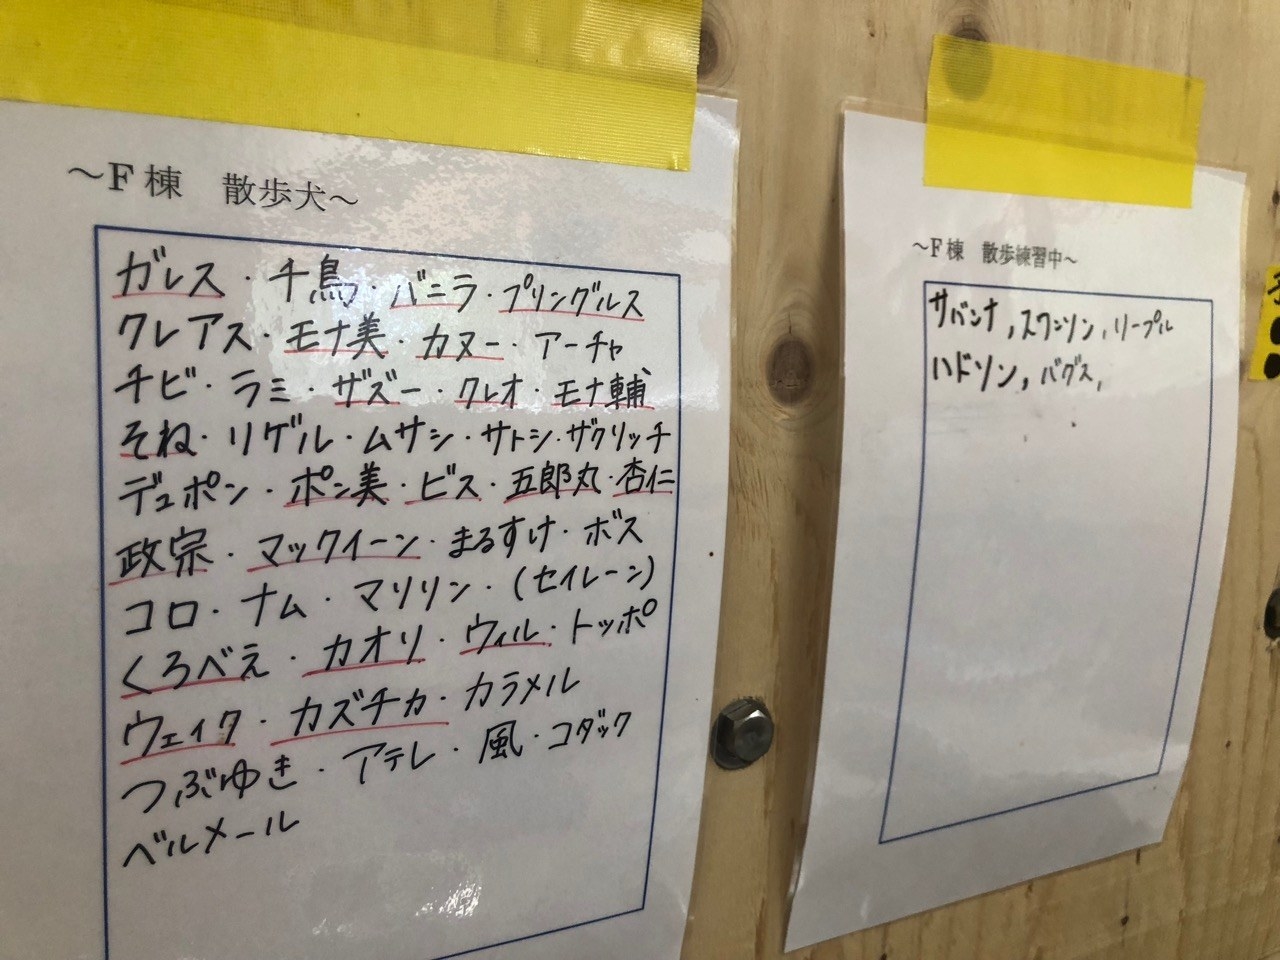 ～F棟　散歩犬～
ガレス・千鳥・バニラ・プリングルス
クレアス・モナ美・カヌー・アーチャ
チビ・ラミ・ザズー・クレオ・モナ輔
そね・リゲル・ムサシ・サトシ・ザクリッチ
デュポン・ポン美・ビス・五郎丸・杏仁
政宗・マックイーン・まるすけ・ボス
コロ・ナム・マリリン・(セイレーン)
くろべえ・カオリ・ウィル・トッポ
ウェイク・カズチカ・カラメル
つぶゆき・アテレ・風・コダック
ベルメール
～F棟　散歩練習中～
サバンナ，スワンソン，リープル
ハドソン，バグス，